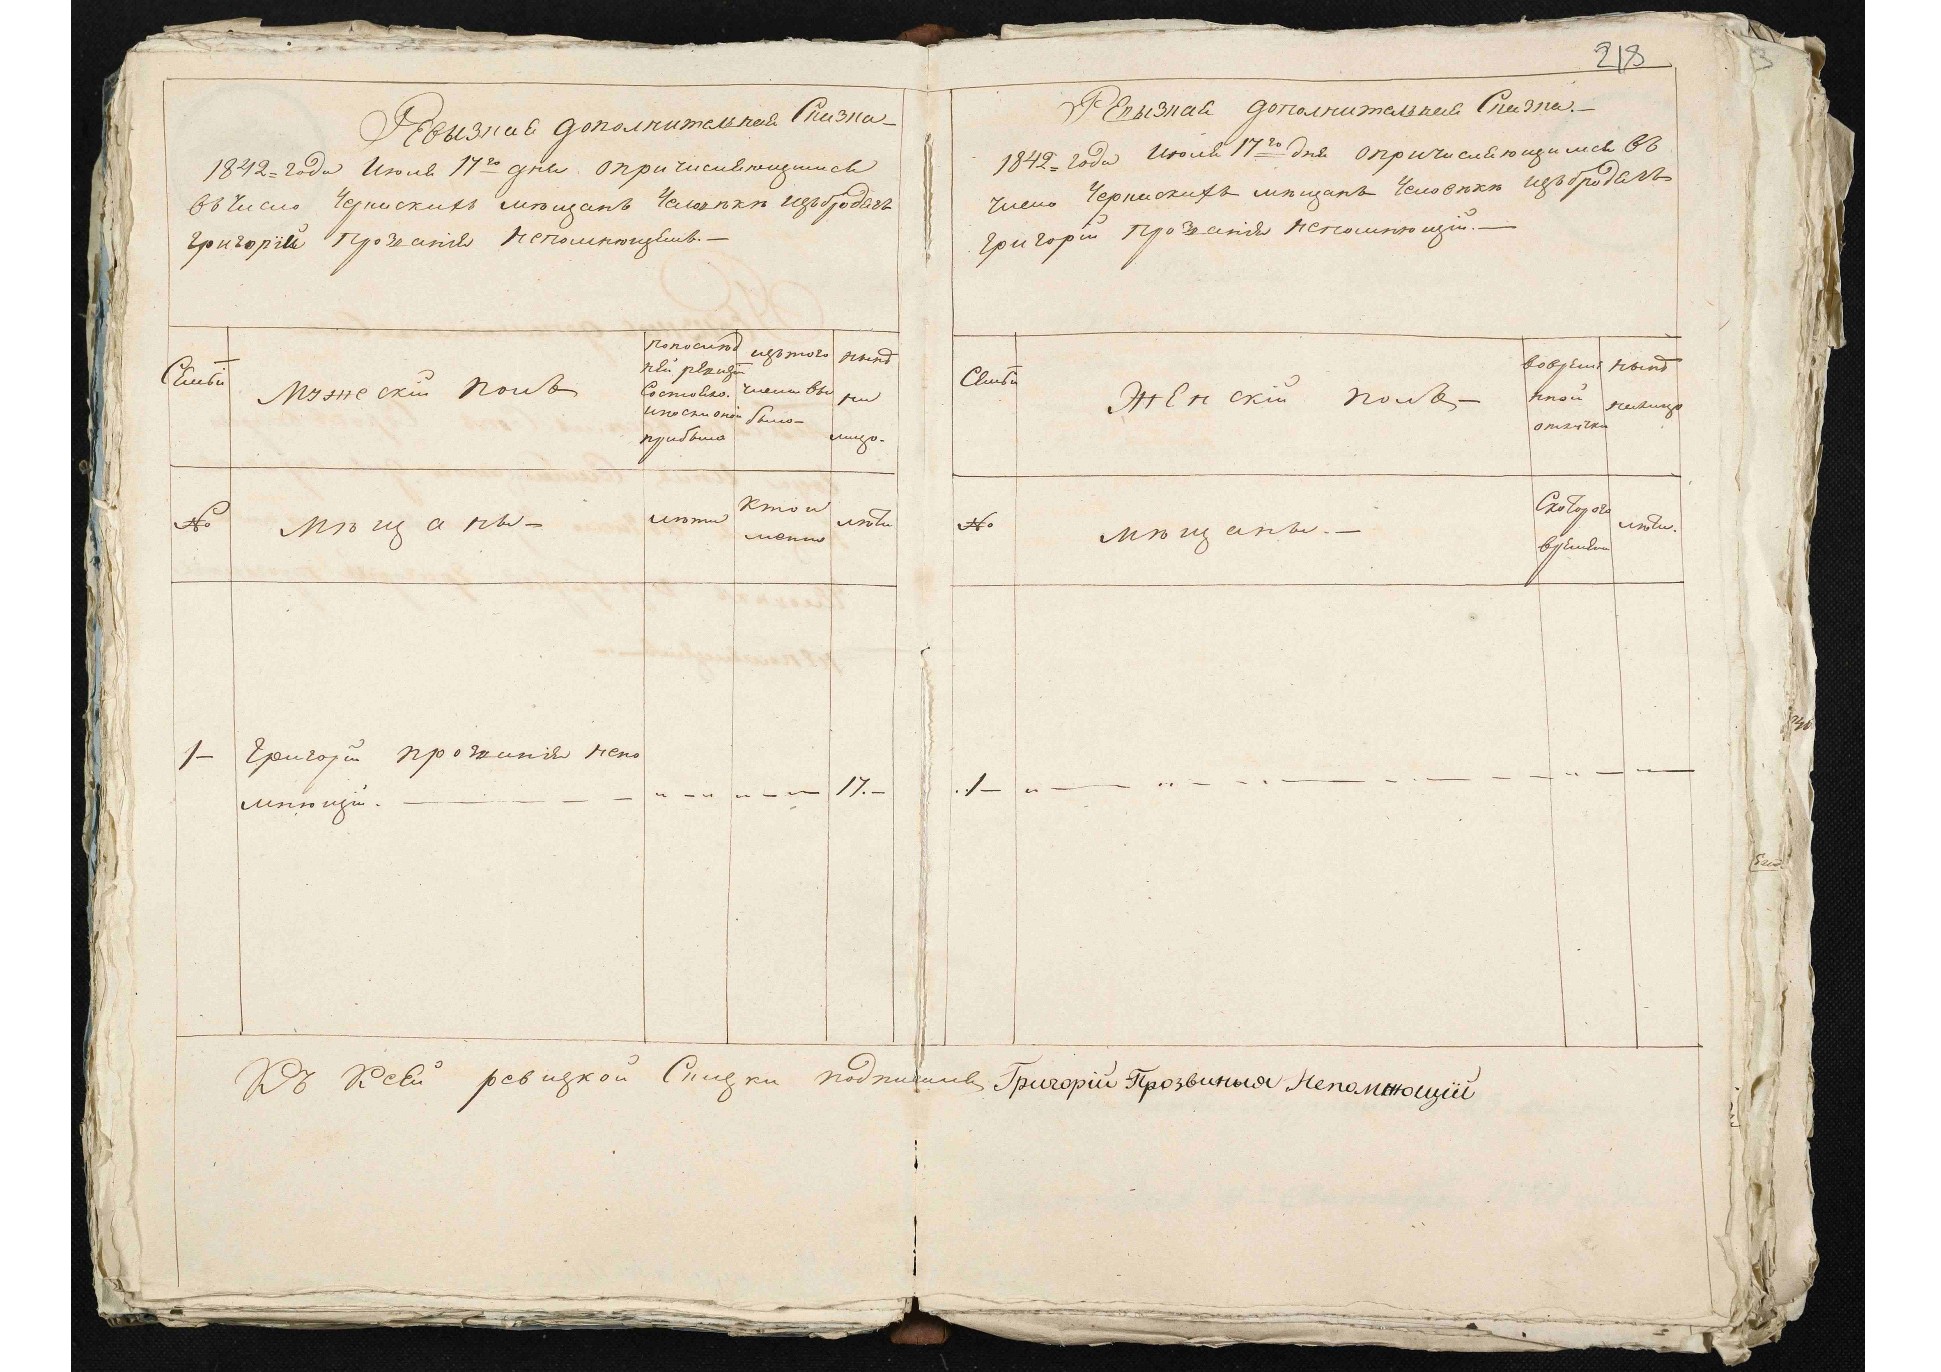 218
Ревызная дополнительная Сказка —
1842 = года Июля 17го дня опричисляющимся
въ число Черкаскихъ мѣщанъ Человѣкѣ изъбродагъ
григорій прозванія непомнющемъ. —
Семьи
Мужескій полъ
попослѣд
ней ревизіи
Состояло.
ипослионой
прибыло
изътого
числа вы
было —
нынѣ
на
лицо.
№
мѣщаны —
лѣта
Кто и
лѣта
1 — григорій прозванія непо
мнющій. — — — „ — „ „ — „ 17. —
Ревызная дополнительная Сказка. —
1842 = года Июля 17го дня опричисляющимся въ
число Черкаскихъ мѣщанъ Человѣкѣ изъбродагъ
григорій прозванія непомнющій. —
Семьи
Женскій полъ —
вовремѣ
нной
отлучки
нынѣ
налицо
№
мѣщаны. —
Скоторого
времени
лѣта.
1 — „ — „ — „ —
Къ Сей ревизкой Сказки подписался Григорій Прозвиныя Непомнющій